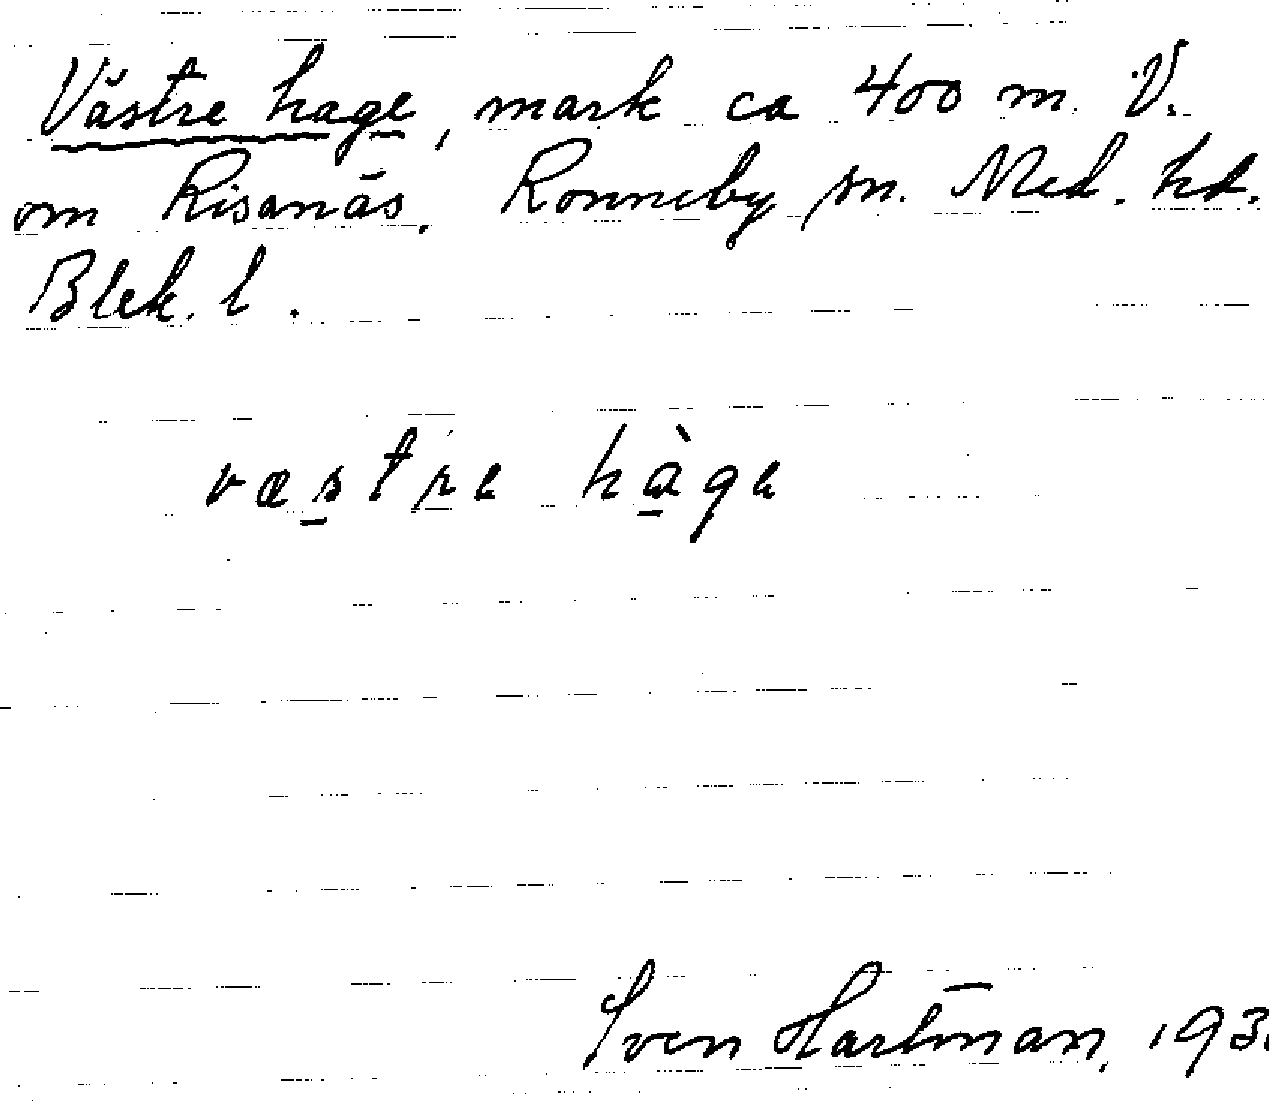 Västre hage, mark ca 400 m. V.
om Risanäs. Ronneby sn. Med. hd.
Blek. l.
væstre hàge
Sven Hartman, 193